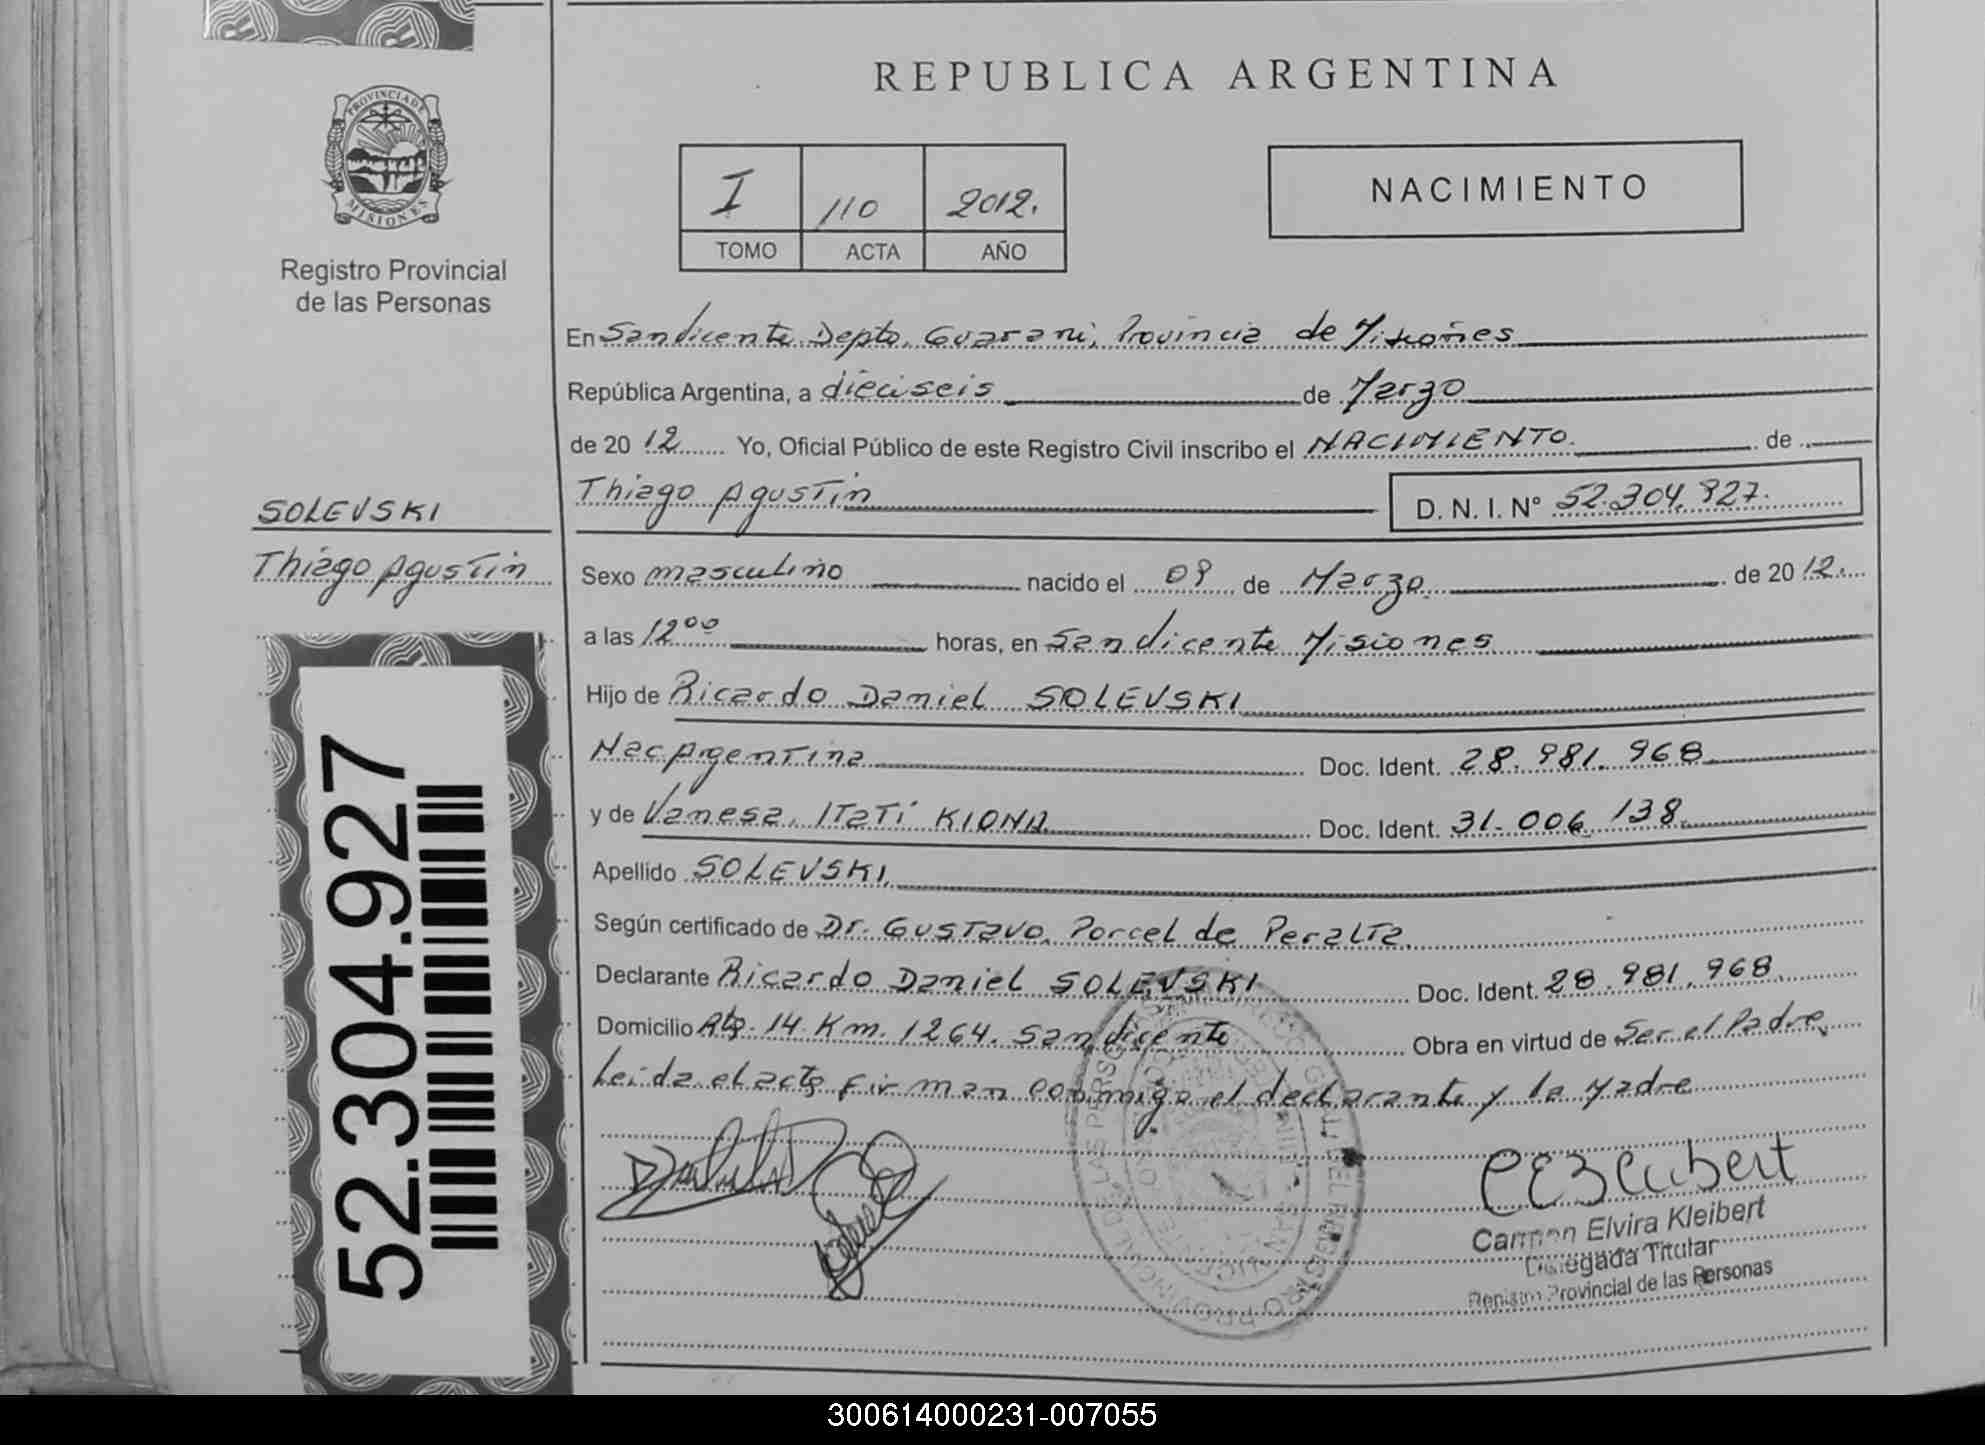 REPUBLICA ARGENTINA
PROVINCIA DE
MISIONES
Registro Provincial
de las Personas
I 110 2012.
TOMO ACTA AÑO
NACIMIENTO
En San Vicente Depto. Guaraní, Provincia de Misiones
República Argentina, a dieciseis de Marzo
de 20 12 Yo, Oficial Público de este Registro Civil inscribo el NACIMIENTO. de
Thiago Agustin D. N. I. N° 52.304.927.
SOLEVSKI
Thiago Agustin
Sexo masculino nacido el 09 de Marzo de 20 12.
a las 12⁰⁰ horas, en San Vicente Misiones
Hijo de Ricardo Daniel SOLEVSKI
Nac Argentina Doc. Ident. 28.981.968
y de Vanesa Itatí KIONA Doc. Ident. 31.006.138
Apellido SOLEVSKI
Según certificado de Dr. Gustavo Porcel de Peralta
Declarante Ricardo Daniel SOLEVSKI Doc. Ident. 28.981.968
Domicilio Rta. 14 Km. 1264. San Vicente Obra en virtud de Ser el Padre
Leida el acta firman conmigo el declarante y la Madre
52.304.927
Carmen Elvira Kleibert
Delegada Titular
Registro Provincial de las Personas
300614000231-007055